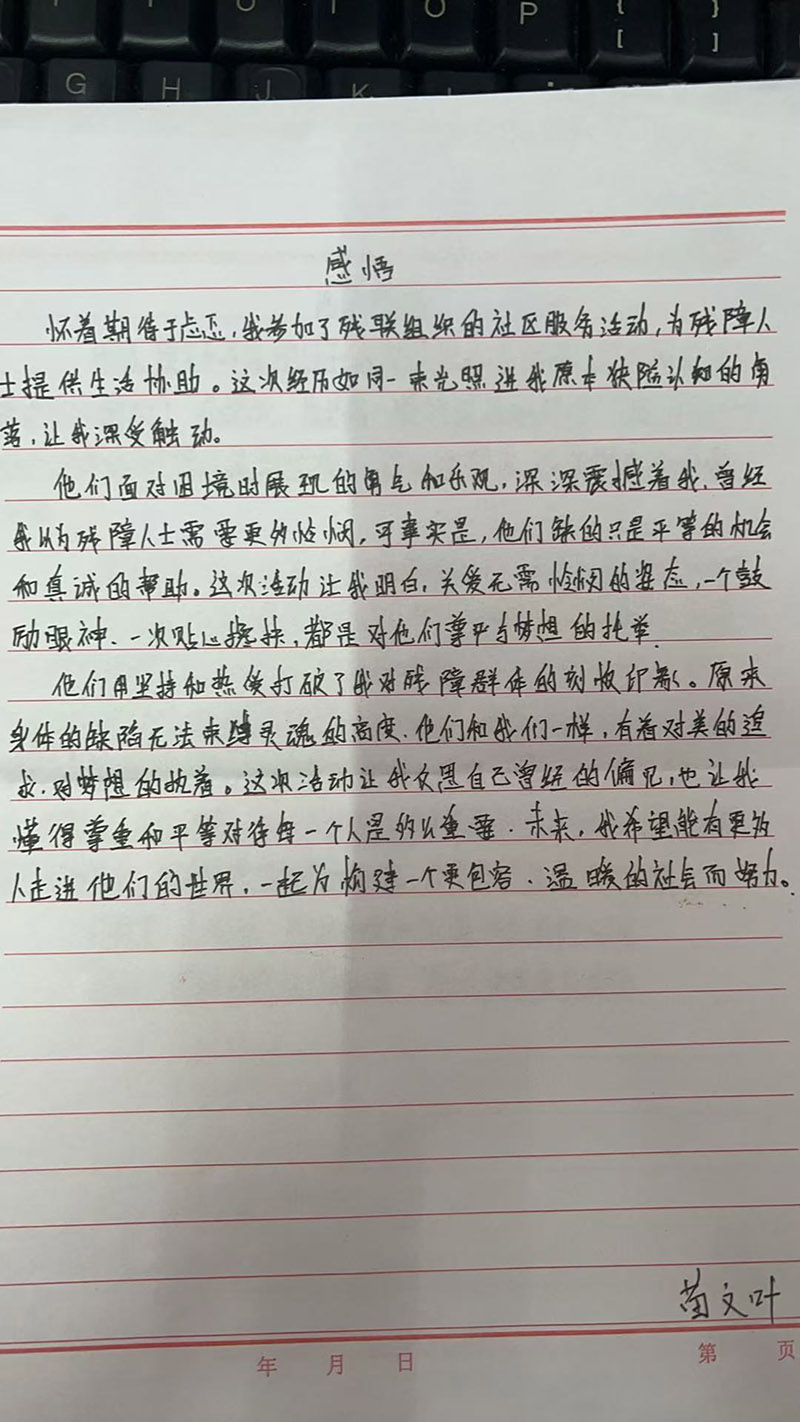 T O P { [ } ]
G H J K L
感悟
怀着期待于忐忑，我参加了残联组织的社区服务活动，为残障人
士提供生活协助。这次经历如同一束光照进我原本狭隘认知的角
落，让我深受触动。
他们面对困境时展现的勇气和乐观，深深震撼着我，曾经
我以为残障人士需要更多怜悯，可事实是，他们缺的只是平等的机会
和真诚的帮助。这次活动让我明白，关爱无需怜悯的姿态，一个鼓
励眼神、一次贴心搀扶，都是对他们尊严与梦想的托举.
他们用坚持和热爱打破了我对残障群体的刻板印象。原来
身体的缺陷无法束缚灵魂的高度，他们和我们一样，有着对美的追
求，对梦想的执着。这次活动让我反思自己曾经的偏见，也让我
懂得尊重和平等对待每一个人是多么重要．未来，我希望能有更多
人走进他们的世界，一起为构建一个更包容、温暖的社会而努力。
苗文叶
年 月 日 第 页